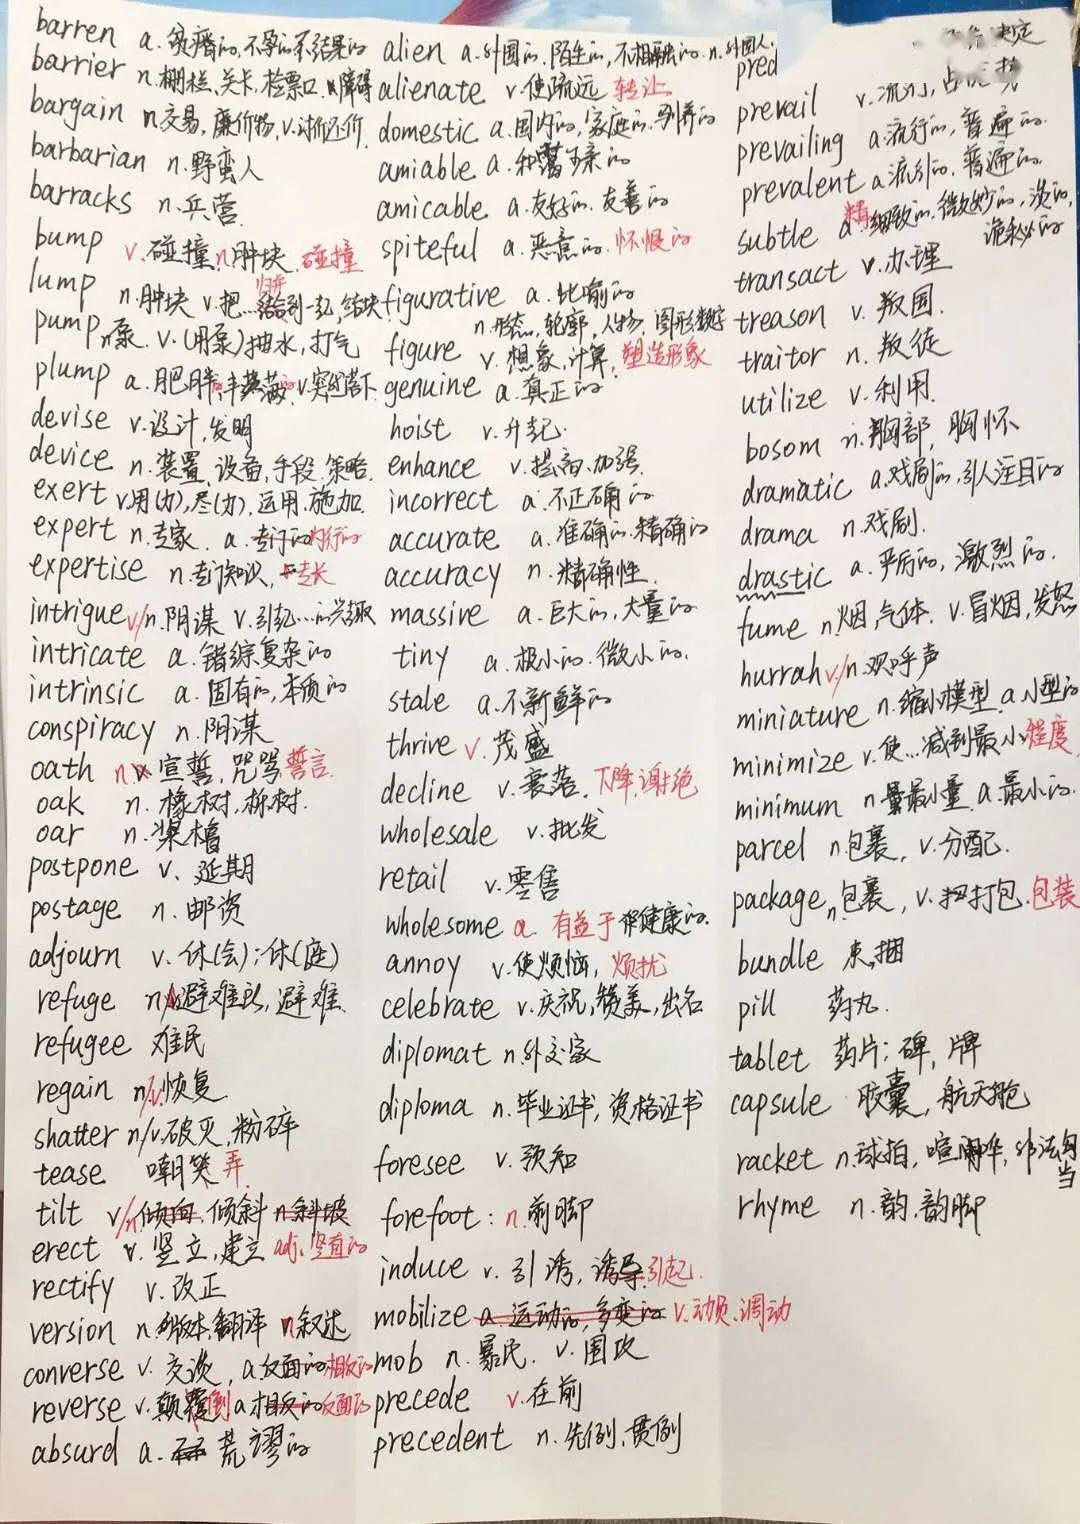 barren a.贫瘠的,不孕的不结果的
barrier n.栅栏,关卡,检票口,障碍
bargain n.交易,廉价物,v.讨价还价
barbarian n.野蛮人
barracks n.兵营
bump v.碰撞,n.肿块,碰撞
lump n.肿块 v.把…归并到一起,结块
pump n.泵 v.(用泵)抽水,打气
plump a.肥胖的丰满的 v.突然落下
devise v.设计,发明
device n.装置,设备,手段,策略
exert v.用(力),尽(力),运用,施加
expert n.专家. a.专门的内行的
expertise n.专门知识,专长
intrigue v/n.阴谋 v.引起…的兴趣
intricate a.错综复杂的
intrinsic a.固有的,本质的
conspiracy n.阴谋
oath n.宣誓,咒骂,誓言
oak n.橡树,栎树.
oar n.桨橹
postpone v.延期
postage n.邮资
adjourn v.休(会);休(庭)
refuge n.避难所,避难.
refugee 难民
regain n/v.恢复
shatter n/v.破灭,粉碎
tease 嘲笑弄
tilt v/n.倾向,倾斜 n.斜坡
erect v.竖立,建立 adj.竖直的
rectify v.改正
version n.版本,翻译 n.叙述
converse v.交谈,a.反面的相反的
reverse v.颠覆倒 a.相反的反面的
absurd a.荒谬的
alien a.外国的,陌生的,不相融的.n.外国人.
alienate v.使疏远 转让
domestic a.国内的,家庭的,驯养的
amiable a.和蔼可亲的
amicable a.友好的.友善的
spiteful a.恶意的.怀恨的
figurative a.比喻的
n.形态,轮廓,人物,图形数字
figure v.想象,计算,塑造形象
genuine a.真正的
hoist v.升起.
enhance v.提高.加强.
incorrect a.不正确的
accurate a.准确的.精确的
accuracy n.精确性.
massive a.巨大的,大量的
tiny a.极小的.微小的.
stale a.不新鲜的
thrive v.茂盛
decline v.衰落.下降,谢绝
wholesale v.批发
retail v.零售
wholesome a.有益于健康的.
annoy v.使烦恼,烦扰
celebrate v.庆祝,赞美,出名
diplomat n.外交家
diploma n.毕业证书,资格证书
foresee v.预知
forefoot: n.前脚
induce v.引诱,诱导引起.
mobilize a.运动的,多变的 v.动员.调动
mob n.暴民. v.围攻
precede v.在前
precedent n.先例,惯例
决定
pred
prevail v.流行,占
prevailing a.流行的,普遍的.
prevalent a.流行的.普遍的.
subtle a.精细致的.微妙的,淡的,
诡秘的
transact v.办理
treason v.叛国.
traitor n.叛徒
utilize v.利用.
bosom n.胸部,胸怀
dramatic a.戏剧的,引人注目的
drama n.戏剧.
drastic a.严厉的,激烈的.
fume n.烟,气体. v.冒烟,发怒
hurrah v/n.欢呼声
miniature n.缩小模型 a.小型的
minimize v.使…减到最小程度
minimum n.最小量,a.最小的.
parcel n.包裹,v.分配.
package n.包裹,v.打包.包装
bundle 束,捆
pill 药丸.
tablet 药片;碑,牌
capsule 胶囊,航天舱
racket n.球拍,喧哗,非法勾
当
rhyme n.韵,韵脚